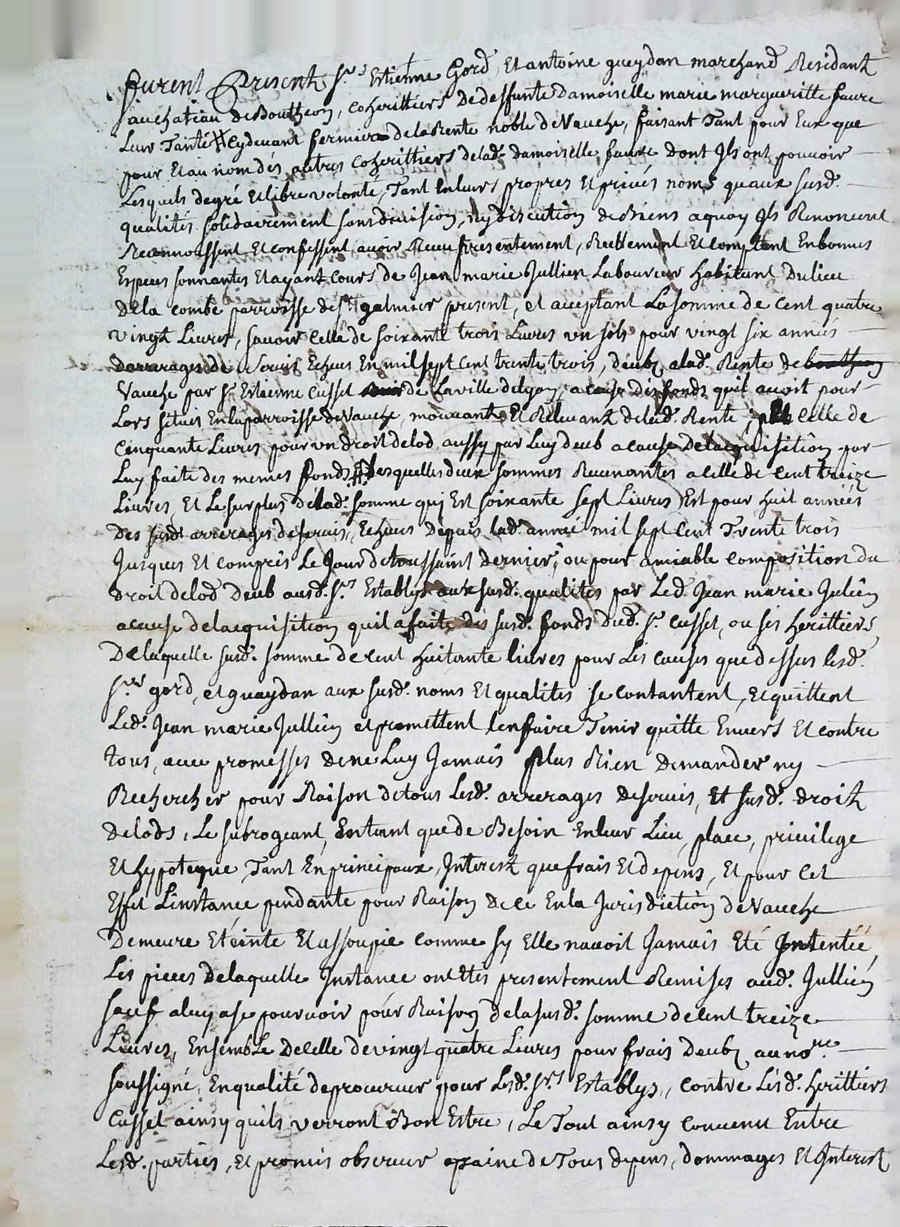 furent Presents Srs Etienne Gord, Et antoine gueydan marchand Residant
au chateau de Boutheon, coherittiers de deffunte damoiselle marie margueritte faure
Leur Tante Cydevant fermiere de la Rente noble de Vauche, faisant Tant pour Eux que
pour Et au nom des autres coherittiers de lad. damoiselle faure dont Ils ont pouvoir
Lesquels de gré Et libre volonte, Tant En leurs propres Et privés noms qu aux susd.
qualités solidairement sans division, ny discution de Biens a quoy Ils Renoncent
Reconnoissent Et confessent avoir Receu presentement, Reellement Et comptant En bonnes
Especes sonnantes Et ayant cours de Jean marie Jullien Laboureur habitant du lieu
de la combe parroisse de St galmier present, et aceptant La somme de Cent quatre
vingt Livres, savoir celle de soixante trois Livres un sols pour vingt six années
darrerages de servis Echeus En mil sept cent trente trois, deubs a lad. Rente de
Vauche par Sr Estienne Cusset de La ville de a cause des fonds qu'il avoit pour
Lors situés En la parroisse de Vauche mouvants Et Relevants de lad. Rente, celle de
Cinquante Livres pour un droit de lod aussy par Luy deub a cause de lacquisition par
Luy faite des memes fonds Lesquelles deux sommes Revenantes a celle de Cent treize
Livres, Et Le surplus de lad. somme qui Est soixante sept Livres Est pour huit années
des susd. arrerages de servis, Echeus depuis lad. année mil sept cent Trente trois
Jusques Et compris Le Jour de toussaint dernier, ou pour amiable composition du
droit de lod deub ausd. Srs Establys aux susd. qualités par Led. Jean marie Julien
a cause de lacquisition qu'il a faite des susd. fonds dud. Sr Cusset, ou ses herittiers
De laquelle susd. somme de cent huitante livres pour Les causes que dessus Lesd.
Srs gord, et guaydan aux susd. noms Et qualités se contantent, Et quittent
Led. Jean marie Jullien et promettent L'en faire Tenir quitte Envers Et contre
tous, avec promesses de ne Luy Jamais plus Rien demander ny
Rechercher pour Raison de tous Lesd. arrerages de servis, Et susd. droit
de lods, Le subrogeant, En tant que de Besoin En leur Lieu, place, privilege
Et hypoteque, Tant En principaux, Interest que frais Et depens, Et pour cet
Effet L'instance pendante pour Raison de ce En la Jurisdiction de Vauche
Demeure Eteinte Et assoupie comme sy Elle n'avoit Jamais Eté Intentée,
Les pieces de laquelle Instance ont Etes presentement Remises aud. Jullien
sauf a luy a se pourvoir pour Raison de la susd. somme de cent treize
Livres, Ensemble de celle de vingt quatre Livres pour frais deubs au nore
soussigné, En qualité de procureur pour Lesd. Srs Establys, contre Lesd. herittiers
Cusset ainsy qu'ils verront Bon Estre, Le Tout ainsy convenu Entre
Lesd. parties, Et promis observer a paine de Tous depens, dommages Et Interest